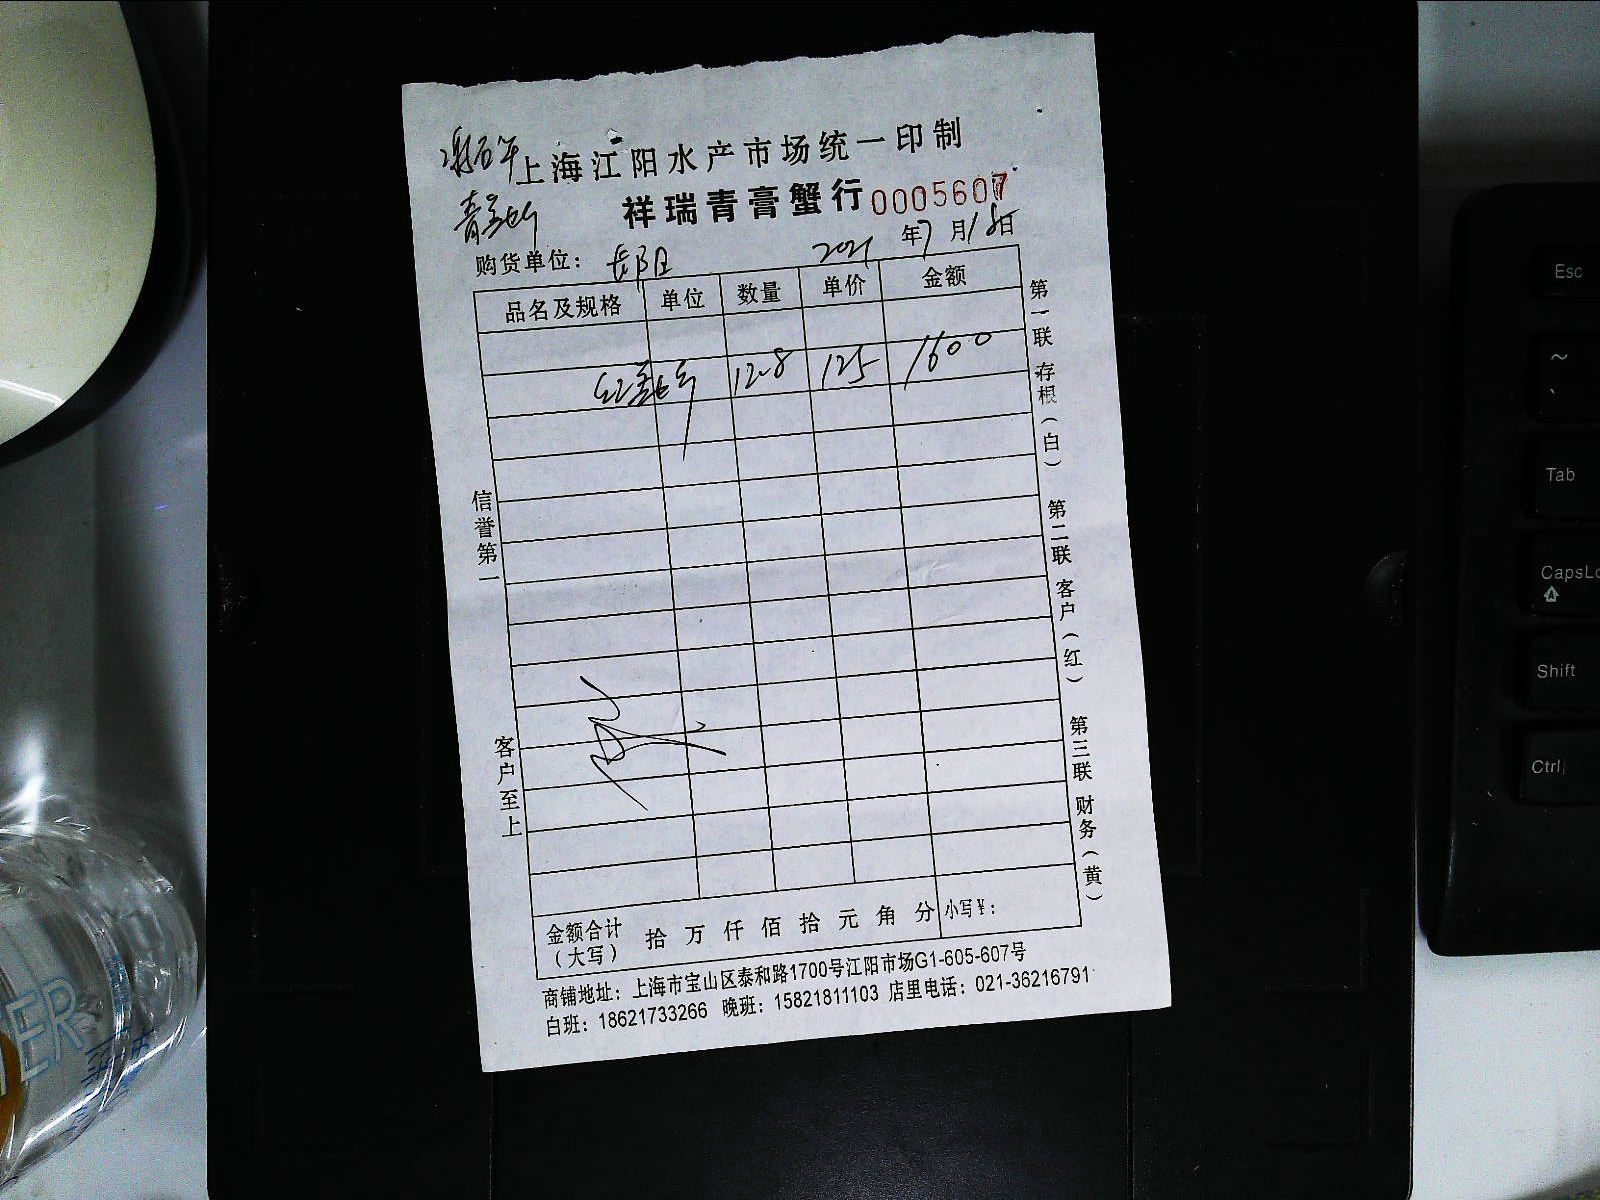 上海江阳水产市场统一印制
祥瑞青膏蟹行 0005607
购货单位： 长阳 2021年7月18日
品名及规格 单位 数量 单价 金额
12.8 125 1600
信誉第一
客户至上
第一联 存根（白）
第二联 客户（红）
第三联 财务（黄）
金额合计（大写） 拾 万 仟 佰 拾 元 角 分 小写￥：
商铺地址：上海市宝山区泰和路1700号江阳市场G1-605-607号
白班：18621733266 晚班：15821811103 店里电话：021-36216791
Esc
~
`
Tab
CapsLo
Shift
Ctrl